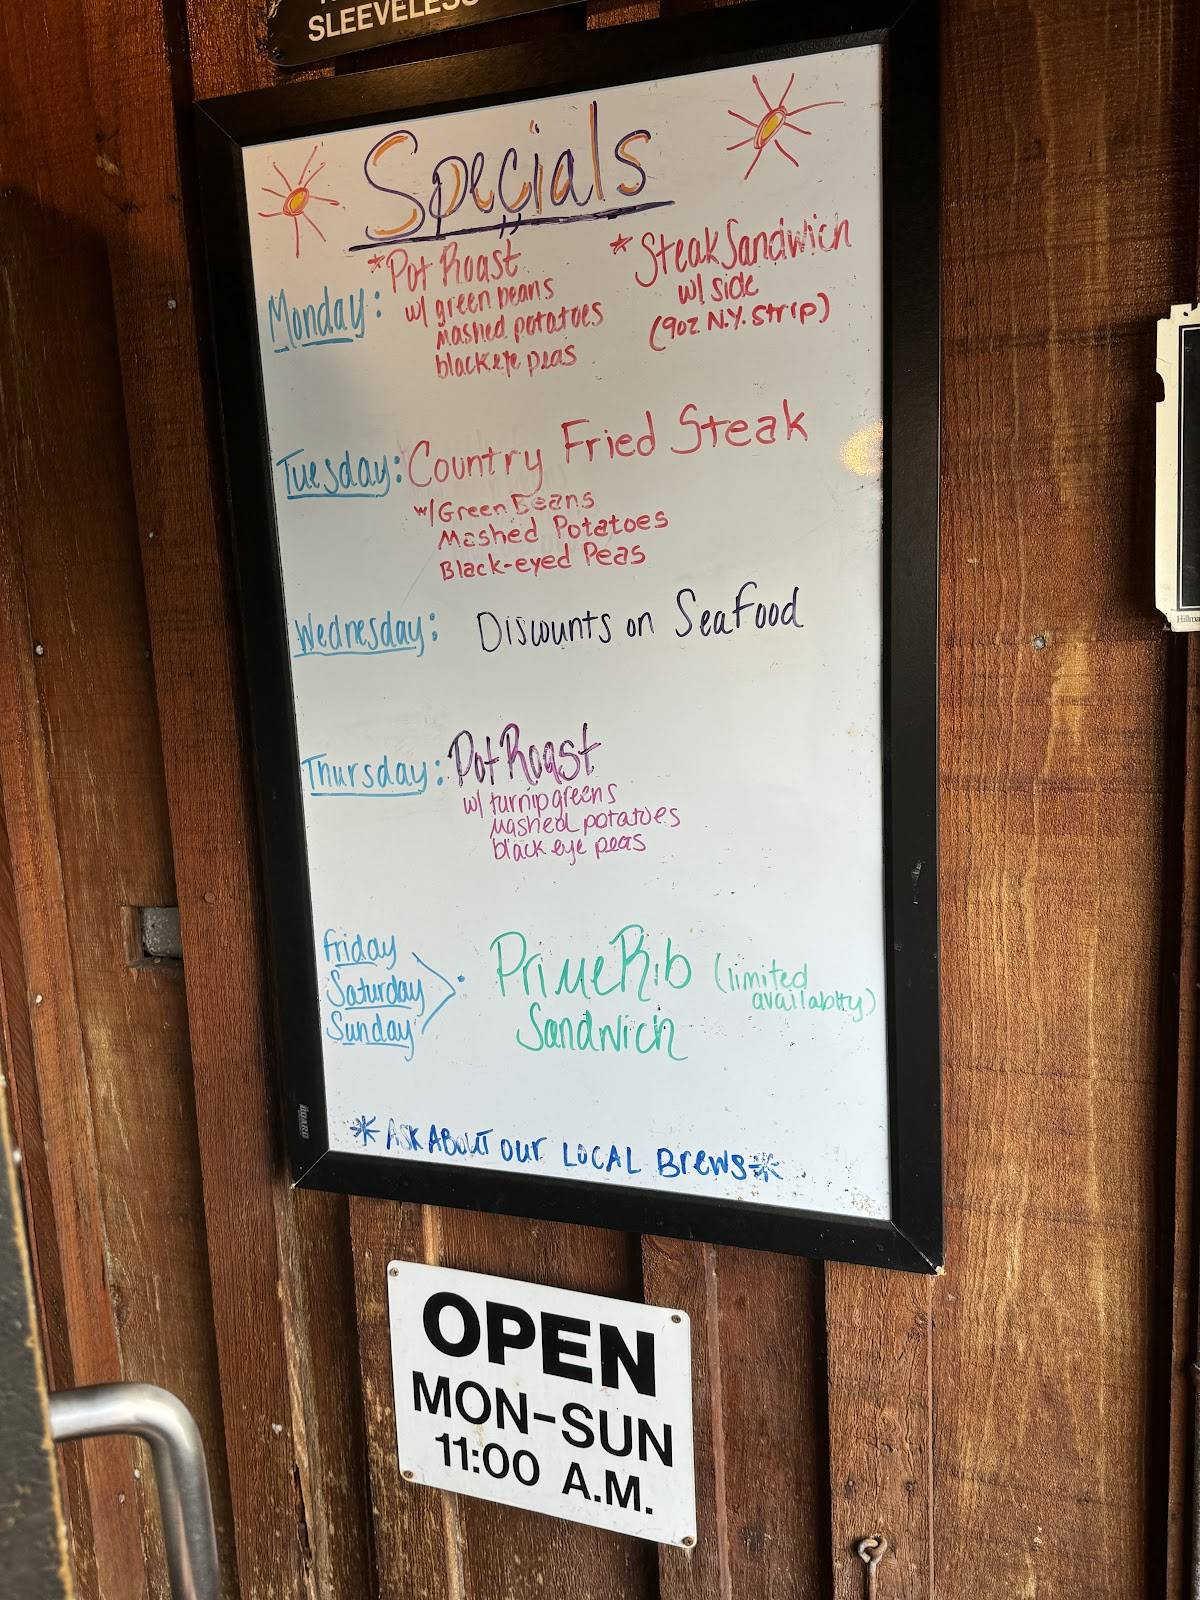 SLEEVELESS
Specials
Monday: *Pot Roast
w/ green beans
mashed potatoes
blackeye peas
*Steak Sandwich
w/ side
(9oz N.Y. Strip)
Tuesday: Country Fried Steak
w/Green Beans
Mashed Potatoes
Black-eyed Peas
Wednesday: Discounts on Seafood
Thursday: Pot Roast
w/ turnip greens
mashed potatoes
black eye peas
Friday
Saturday
Sunday
Prime Rib (limited
availablty)
Sandwich
*ASK ABOUT our LOCAL Brews*
OPEN
MON-SUN
11:00 A.M.